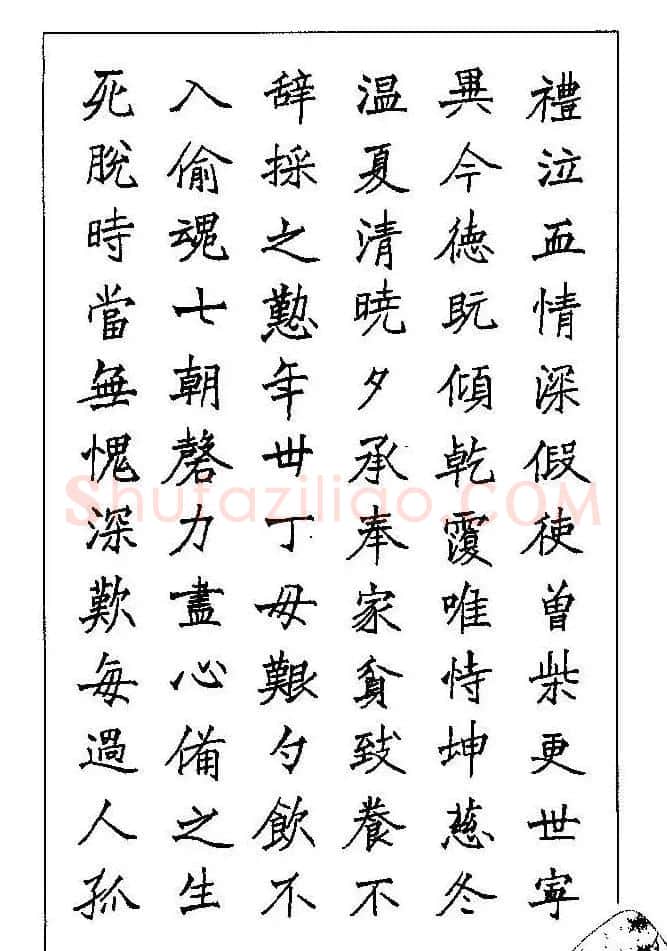 禮泣血情深假使曾柴更世寧
異今德既傾乾覆唯恃坤慈冬
温夏清曉夕承奉家貧致養不
辞採之懃年丗丁毋艱勺飲不
入偷魂七朝磬力盡心備之生
死脫時當無愧深歎每過人孤
Shufaziliao.COM